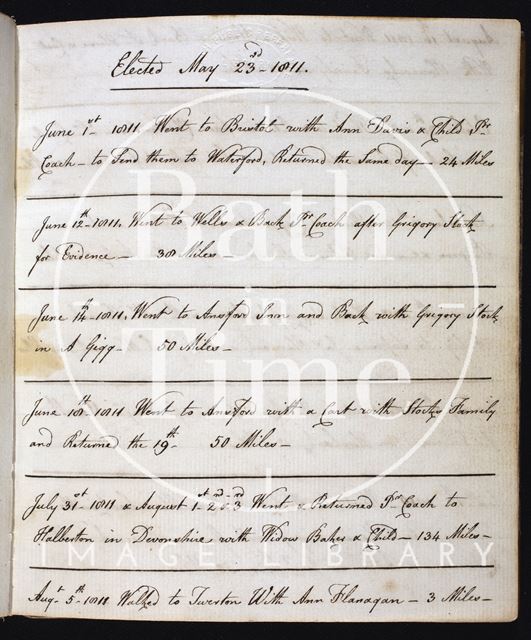 Elected May 23rd - 1811.
June 1st - 1811 Went to Bristol with Ann Davis & Child Pr
Coach - to Send them to Waterford, Returned the Same day - 24 Miles
June 12th - 1811, Went to Wells & Back Pr Coach after Grigory Stock
for Evidence - 38 Miles -
June 14th - 1811, Went to Ansford Inn and Back with Gregory Stock
in A Gigg - 50 Miles -
June 18th - 1811 Went to Ansford with a Cart with Stocks Family
and Returned the 19th - 50 Miles -
July 31st - 1811 & August 1st - 2nd & 3rd Went & Returned Pr Coach to
Halberton in Devonshire with Widow Bakes & Child - 134 Miles -
Augt 5th - 1811 Walked to Twerton With Ann Flanagan - 3 Miles -
Bath
in
Time
IMAGE LIBRARY